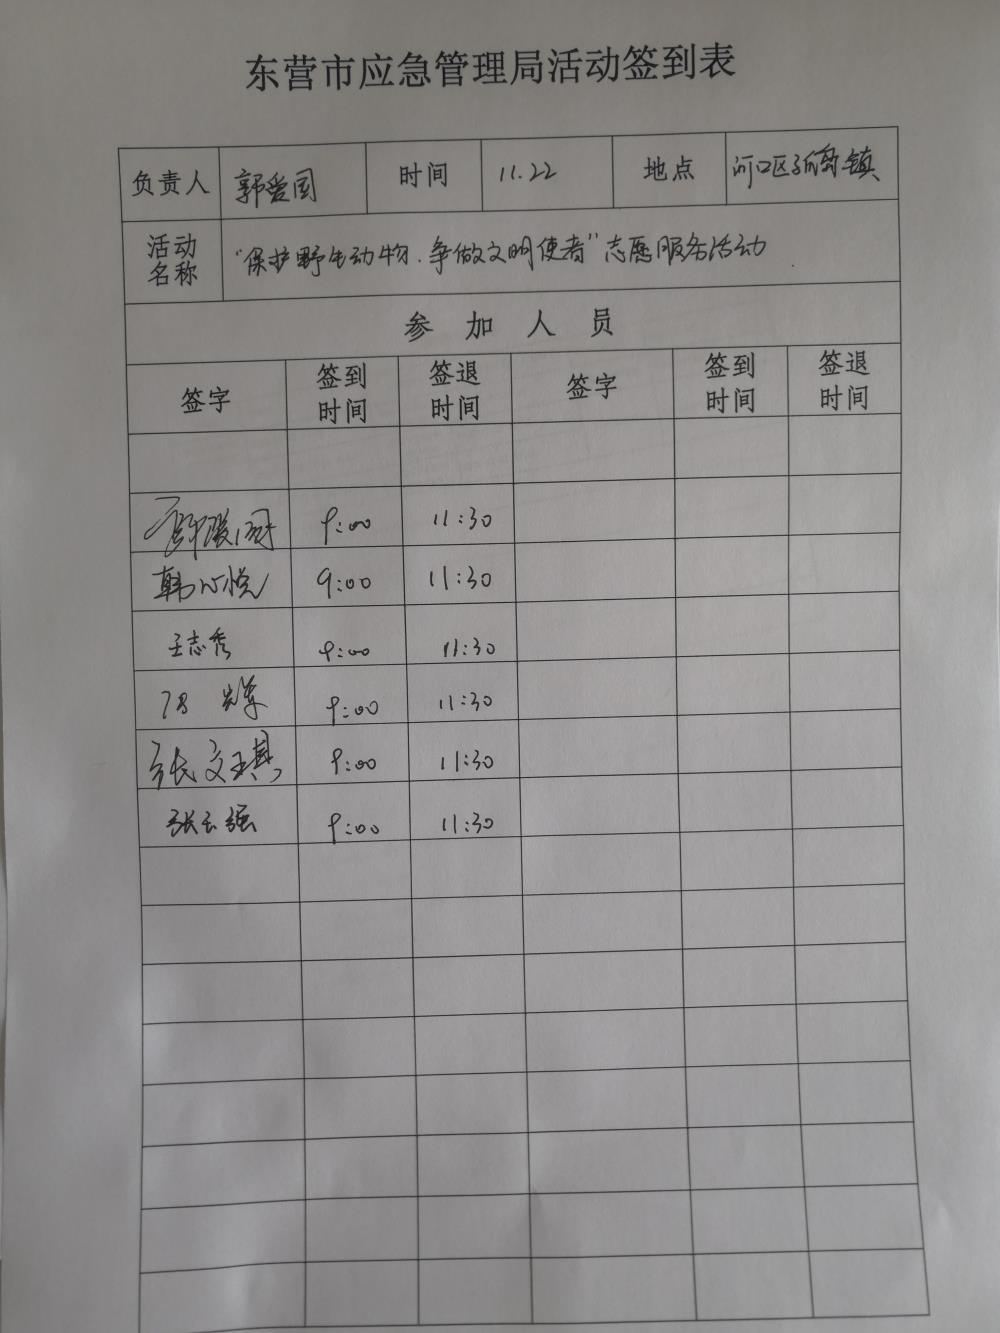 东营市应急管理局活动签到表
负责人 郭爱国 时间 11.22 地点 河口区孤岛镇
活动名称 “保护野生动物、争做文明使者”志愿服务活动
参加人员
签字 签到时间 签退时间 签字 签到时间 签退时间
郭爱国 9:00 11:30
韩心悦 9:00 11:30
王志秀 9:00 11:30
9:00 11:30
张文琪 9:00 11:30
张玉强 9:00 11:30